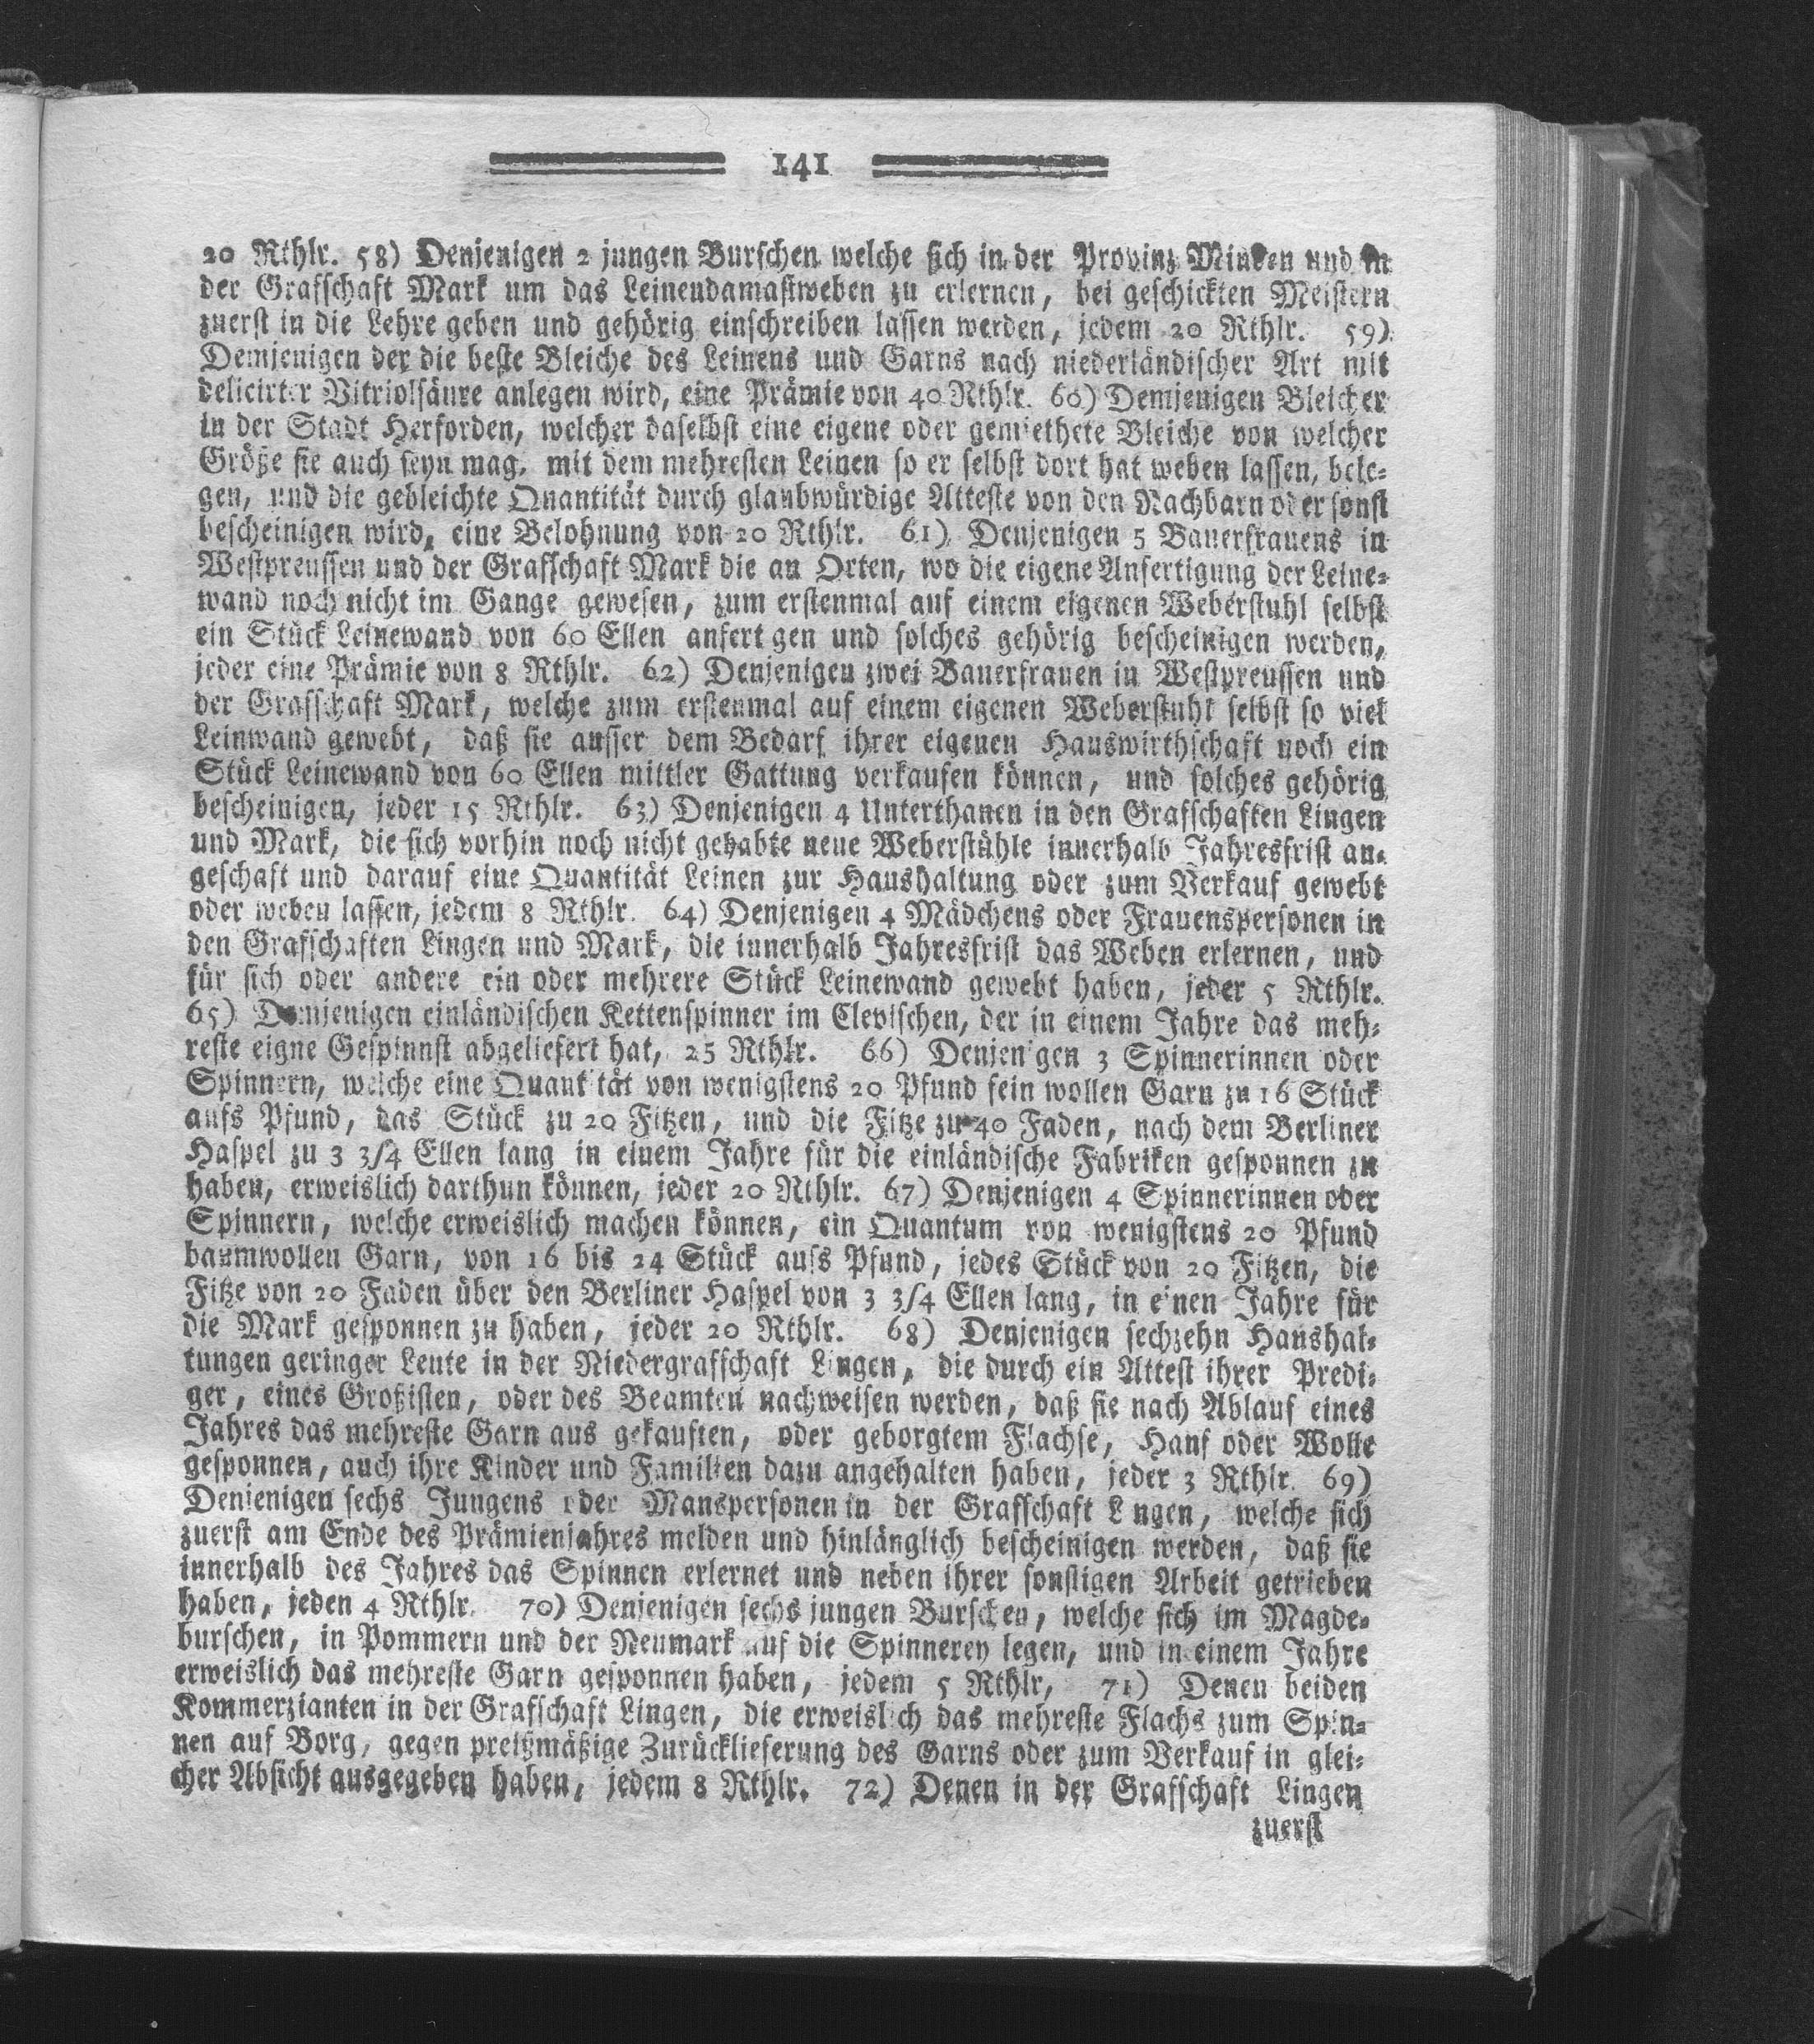 141
20 Rthlr. 58) Denjenigen 2 jungen Burschen welche sich in der Provinz Minden und in
der Grafschaft Mark um das Leinendamastweben zu erlernen, bei geschickten Meistern
zuerst in die Lehre geben und gehörig einschreiben lassen werden, jedem 20 Rthlr. 59)
Demjenigen der die beste Bleiche des Leinens und Garns nach niederländischer Art mit
delicirter Vitriolsäure anlegen wird, eine Prämie von 40 Rthlr. 60) Demjenigen Bleicher
in der Stadt Herforden, welcher daselbst eine eigene oder gemiethete Bleiche von welcher
Größe sie auch seyn mag, mit dem mehresten Leinen so er selbst dort hat weben lassen, bele-
gen, und die gebleichte Quantität durch glaubwürdige Atteste von den Nachbarn oder sonst
bescheinigen wird, eine Belohnung von 20 Rthlr. 61) Denjenigen 5 Bauerfrauens in
Westpreussen und der Grafschaft Mark die an Orten, wo die eigene Anfertigung der Leine-
wand noch nicht im Gange gewesen, zum erstenmal auf einem eigenen Weberstuhl selbst
ein Stück Leinewand von 60 Ellen anfertgen und solches gehörig bescheinigen werden,
jeder eine Prämie von 8 Rthlr. 62) Denjenigen zwei Bauerfrauen in Westpreussen und
der Grafschaft Mark, welche zum erstenmal auf einem eigenen Weberstuhl selbst so viel
Leinwand gewebt, daß sie ausser dem Bedarf ihrer eigenen Hauswirthschaft noch ein
Stück Leinewand von 60 Ellen mittler Gattung verkaufen können, und solches gehörig
bescheinigen, jeder 15 Rthlr. 63) Denjenigen 4 Unterthanen in den Grafschaften Lingen
und Mark, die sich vorhin noch nicht gehabte neue Weberstühle innerhalb Jahresfrist an-
geschaft und darauf eine Quantität Leinen zur Haushaltung oder zum Verkauf gewebt
oder weben lassen, jedem 8 Rthlr. 64) Denjenigen 4 Mädchens oder Frauenspersonen in
den Grafschaften Lingen und Mark, die innerhalb Jahresfrist das Weben erlernen, und
für sich oder andere ein oder mehrere Stück Leinewand gewebt haben, jeder 5 Rthlr.
65) Demjenigen einländischen Kettenspinner im Clevischen, der in einem Jahre das meh-
reste eigne Gespinnst abgeliefert hat, 25 Rthlr. 66) Denjenigen 3 Spinnerinnen oder
Spinnern, welche eine Quantität von wenigstens 20 Pfund fein wollen Garn zu 16 Stück
aufs Pfund, das Stück zu 20 Fitzen, und die Fitze zu 40 Faden, nach dem Berliner
Haspel zu 3 3/4 Ellen lang in einem Jahre für die einländische Fabriken gesponnen zu
haben, erweislich darthun können, jeder 20 Rthlr. 67) Denjenigen 4 Spinnerinnen oder
Spinnern, welche erweislich machen können, ein Quantum von wenigstens 20 Pfund
baumwollen Garn, von 16 bis 24 Stück aufs Pfund, jedes Stück von 20 Fitzen, die
Fitze von 20 Faden über den Berliner Haspel von 3 3/4 Ellen lang, in einen Jahre für
die Mark gesponnen zu haben, jeder 20 Rthlr. 68) Denjenigen sechzehn Haushal-
tungen geringer Leute in der Niedergrafschaft Lingen, die durch ein Attest ihrer Predi-
ger, eines Großisten, oder des Beamten nachweisen werden, daß sie nach Ablauf eines
Jahres das mehreste Garn aus gekauften, oder geborgtem Flachse, Hanf oder Wolle
gesponnen, auch ihre Kinder und Familien dazu angehalten haben, jeder 3 Rthlr. 69)
Denjenigen sechs Jungens oder Manspersonen in der Grafschaft Lngen, welche sich
zuerst am Ende des Prämienjahres melden und hinlänglich bescheinigen werden, daß sie
innerhalb des Jahres das Spinnen erlernet und neben ihrer sonstigen Arbeit getrieben
haben, jeden 4 Rthlr. 70) Denjenigen sechs jungen Burschen, welche sich im Magde-
burschen, in Pommern und der Neumark auf die Spinnerey legen, und in einem Jahre
erweislich das mehreste Garn gesponnen haben, jedem 5 Rthlr, 71) Denen beiden
Kommerzianten in der Grafschaft Lingen, die erweislich das mehreste Flachs zum Spin-
nen auf Borg, gegen preißmäßige Zurücklieferung des Garns oder zum Verkauf in glei-
cher Absicht ausgegeben haben, jedem 8 Rthlr. 72) Denen in der Grafschaft Lingen
zuerst